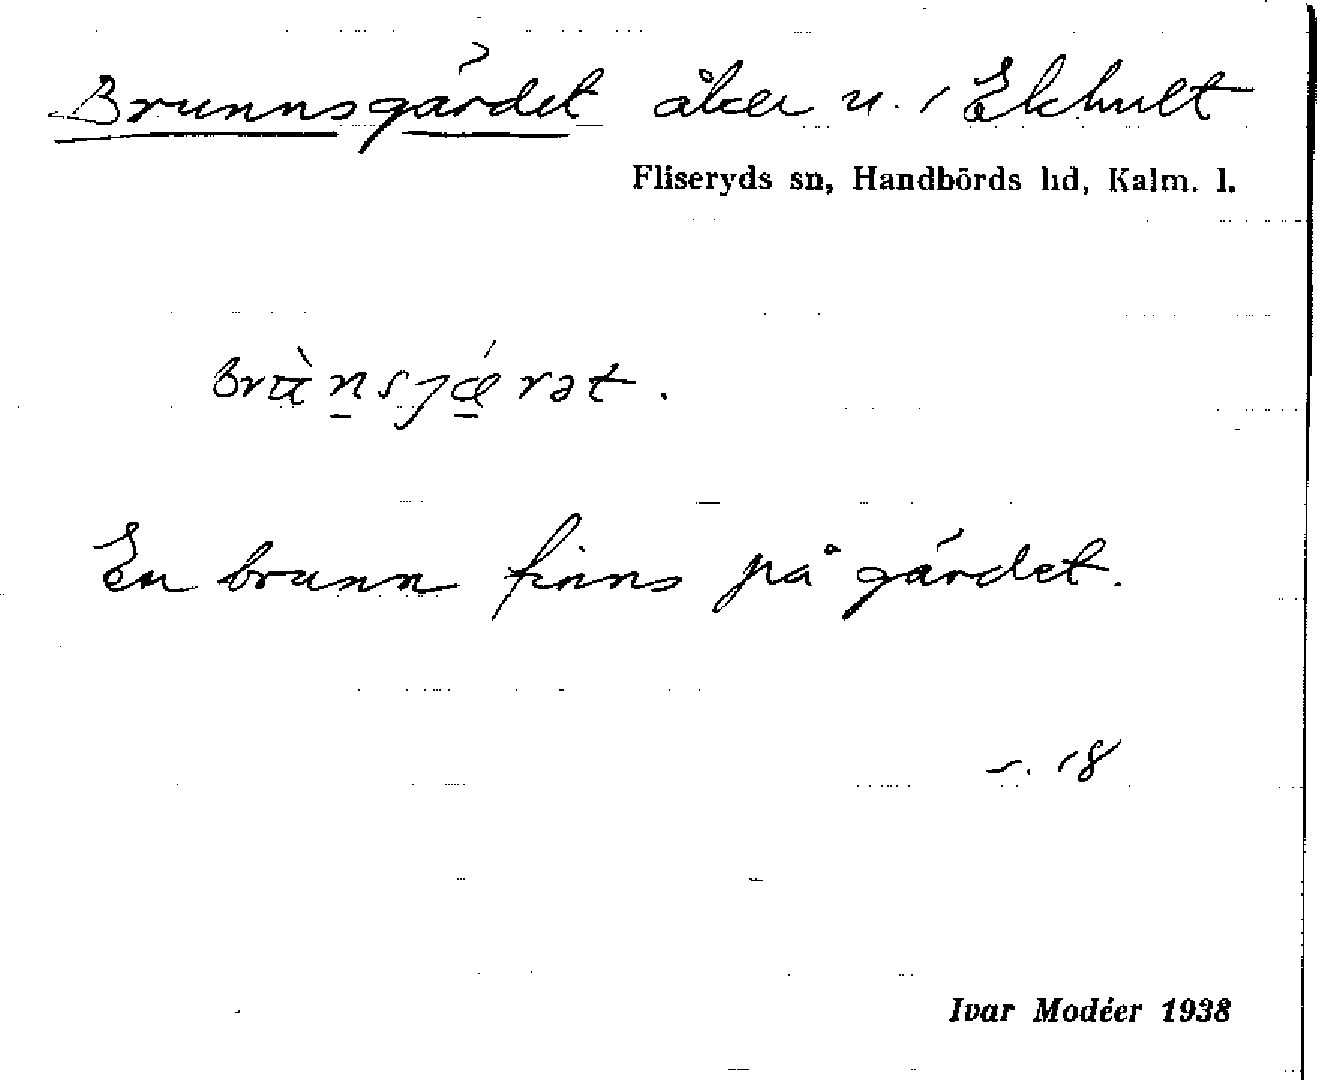 Brunnsgärdet åker u. / Ekhult
Fliseryds sn, Handbörds hd, Kalm. l.
En brunn finns på gärdet.
s. 18
Ivar Modéer 1938